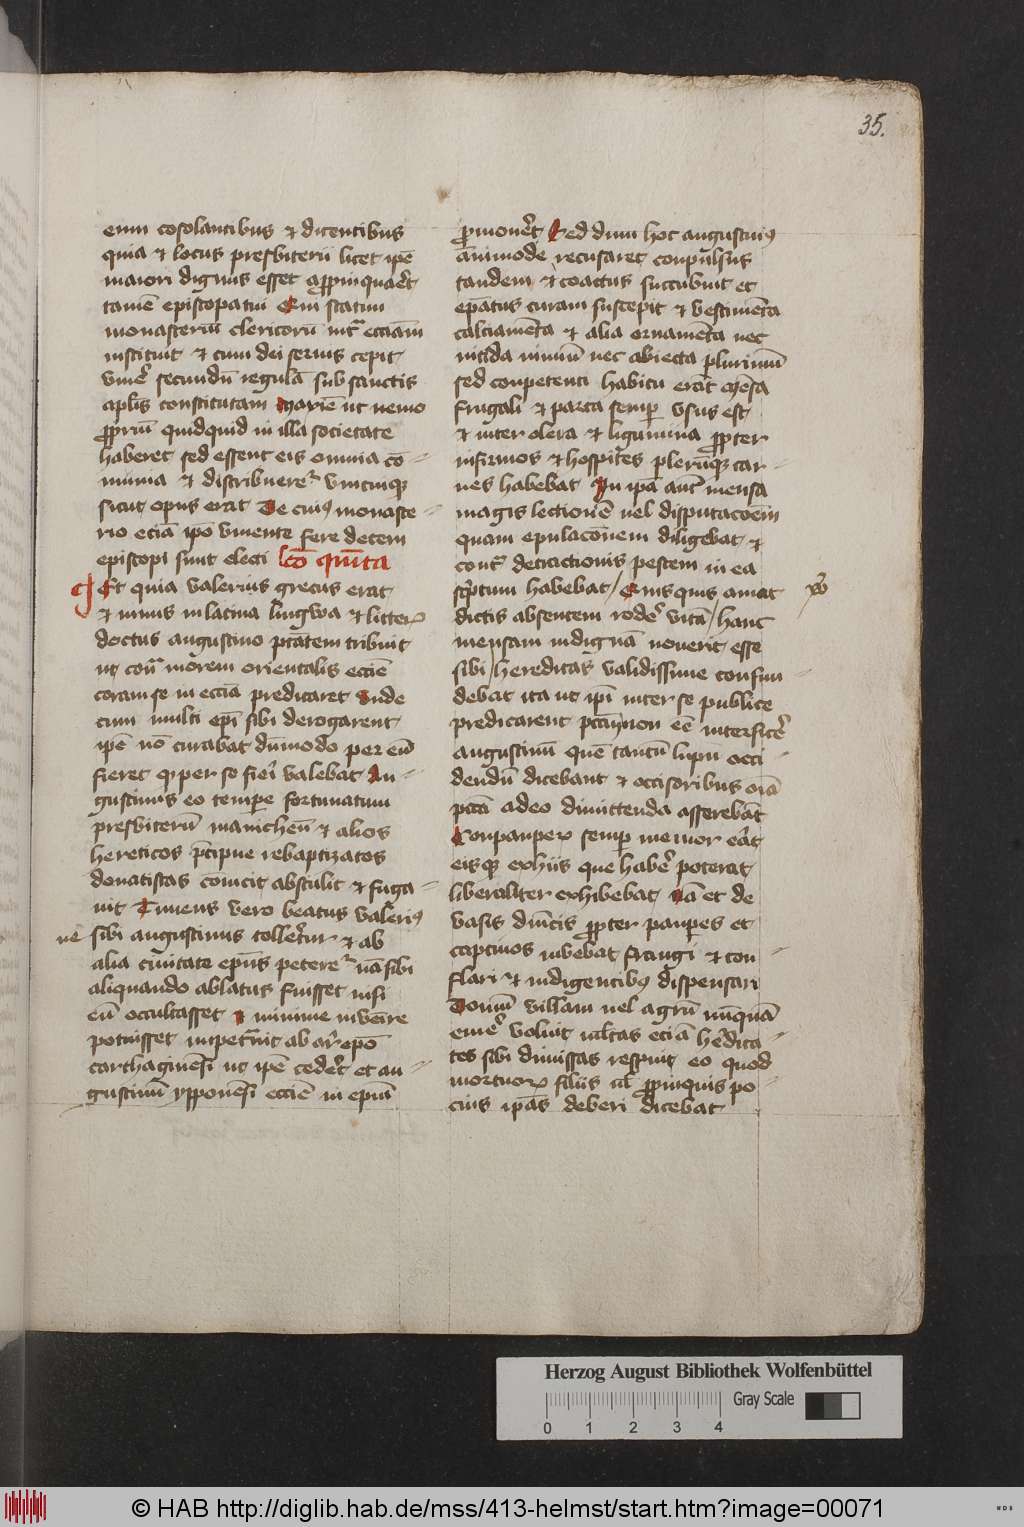 35.
eum cōsolantibus et dicentibus
quia et locus presbiterii licet ip̄e
maiori dignus esset appropinquaret
tamē episcopatui Qui statim
monasteriū clericorū intra eccīam
instituit et cum dei seruis cepit
viuere secundū regulā sub sanctis
aplīs constitutam ut nemo
propriū quidquid in illa societate
haberet sed essent eis omnia cō
munia et distribueretur unicuique
sicut opus erat De cuius monaste
rio eciā ipō viuente fere decem
episcopi sunt electi lcō quīta
Et quia valerius grecus erat
et minus in latina lingwa et litteris
doctus augustino ptātem tribuit
ut contra morem orientalis eccīe
coram se in eccīa predicaret Unde
cum multi epī sibi derogarent
ip̄e nō curabat dūmodo per eū
fieret quod per se fieri valebat Au
gustinus eo tempore fortunatum
presbiterū manicheū et alios
hereticos precipue rebaptizatos
donatistas cōuicit abstulit et fuga
uit Timens vero beatus valerius
ne sibi augustinus tolleretur et ab
alia ciuitate epūs peteretur nā sibi
aliquando ablatus fuisset nisi
eū occultasset et minime inuenire
potuisset impetrauit ab archiepō
carthaginēsi ut ip̄e cederet et au
gustinū ypponēsi eccīe in epūm
promoueret Sed dum hoc augustinus
animode recusaret conpulsus
tandem et coactus succubuit et
epātus curam suscepit et vestimēta
calciamēta et alia ornamēta nec
nitida nimiū nec abiecta plurimū
sed conpetenti habitu erāt Mēsa
frugali et parca semper usus est
et inter olera et ligumina propter
infirmos et hospites plerūque car
nes habebat In ipā autem mensa
magis lectionē uel disputacōem
quam epulacōnem diligebat et
contra detractionis pestem in ea
scriptum habebat / Quisquis amat
dictis absentem rodere vitā / hanc
mensam indignā nouerit esse
sibi / hereditas validissime confun
debat ita ut ipī inter se publice
predicarent pctm̄ non eē interficere
augustinū quē tantū lupū occi
dendū dicebant et occisoribus oīa
pctā adeo dimittenda asserebāt
Conpauperum semper memor erat
eisque ex hiis que habere poterat
liberaliter exhibebat Nā et de
vasis dnīcis propter pauperes et
captiuos iubebat frangi et con
flari et indigentibus dispensari
Domū villam uel agrū nūquā
emere voluit multas eciā heredita
tes sibi dimissas respuit eo quod
mortuorum filiis uel propinquis po
cius ipās deberi dicebat
Herzog August Bibliothek Wolfenbüttel
Gray Scale
0 1 2 3 4
© HAB http://diglib.hab.de/mss/413-helmst/start.htm?image=00071